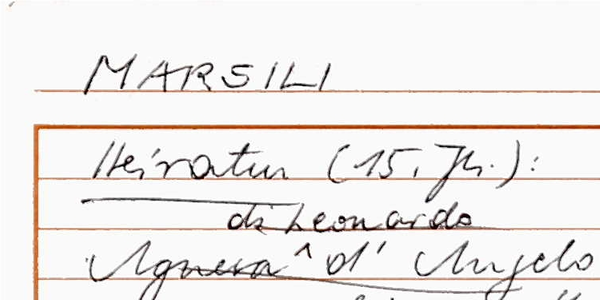 MARSILI
Heiraten (15. Jh.):
di Leonardo
Agnesa ^ d'Angelo